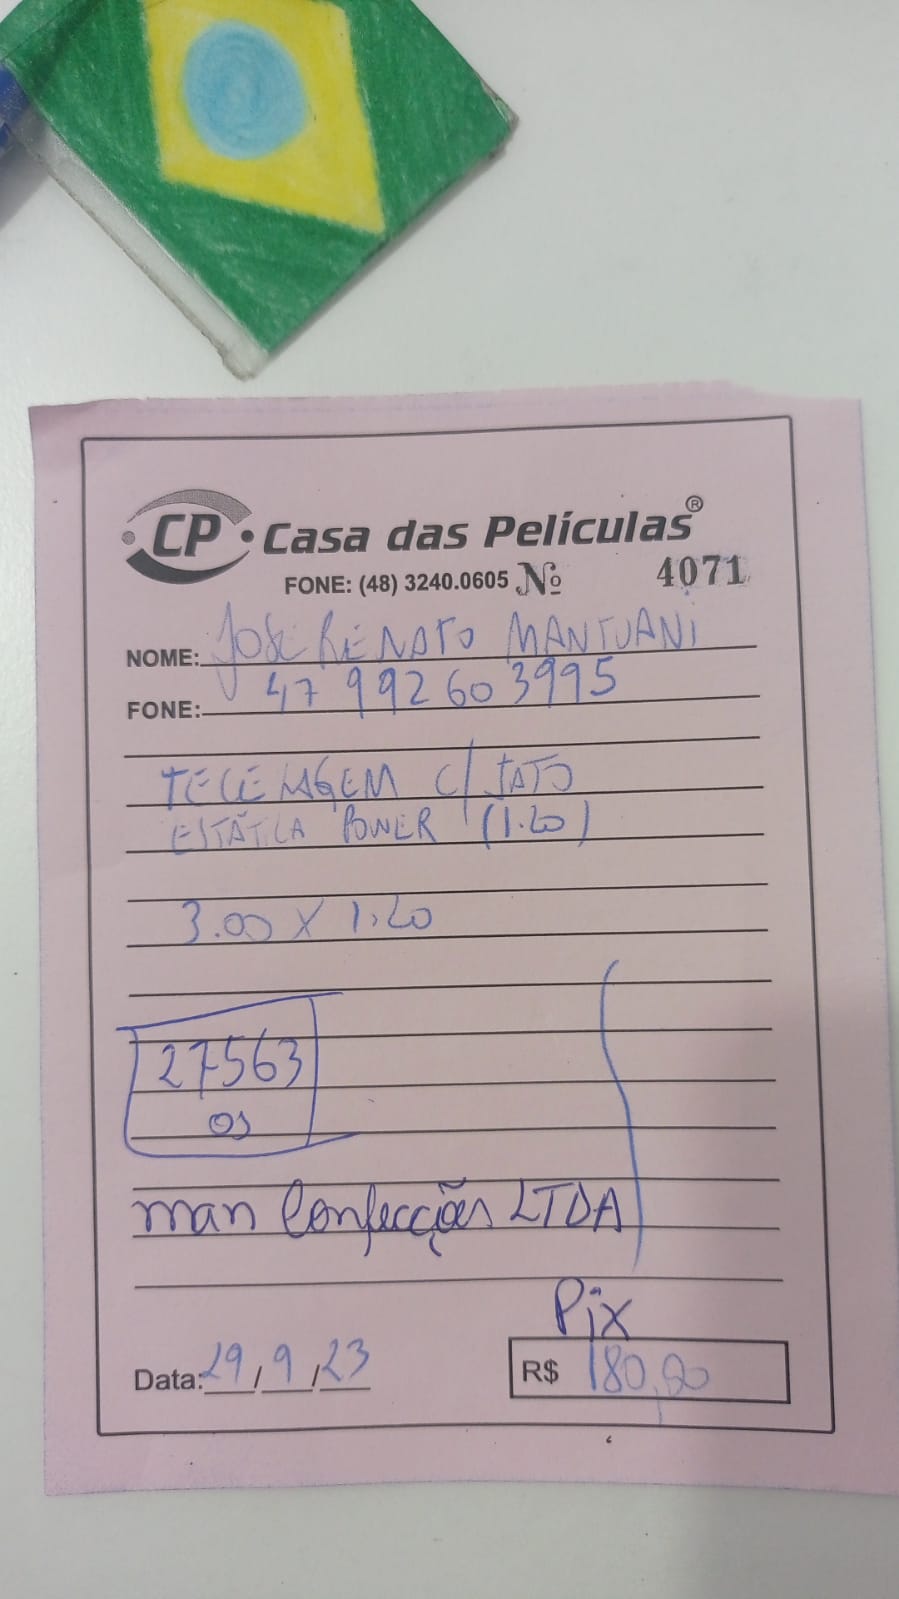 CP Casa das Películas®
FONE: (48) 3240.0605 Nº 4071
NOME: JOSÉ RENATO MANTUANI
FONE: 47 99260 3995
C/ JATO
ESTÁTICA POWER (1.20)
3.00 X 1.20
27563
OS
man Confecções LTDA
Pix
Data: 29/9/23 R$ 180,00